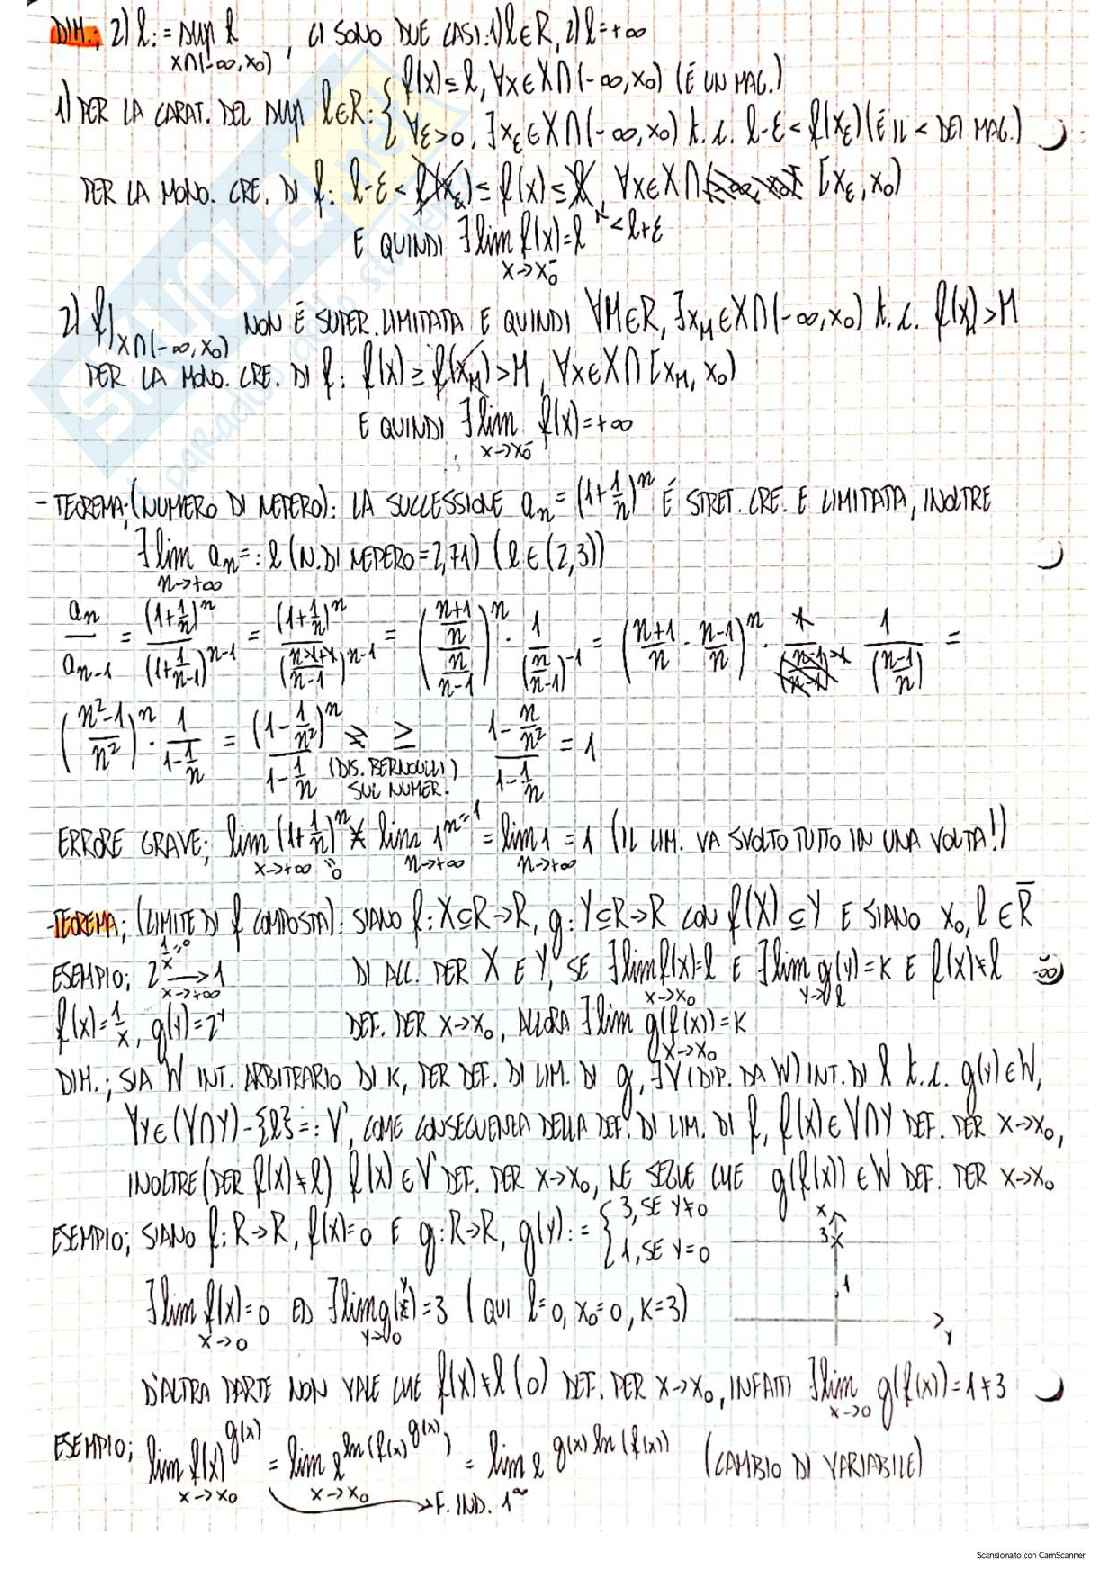 DIM.; 2) l := sup f , CI SONO DUE CASI: 1) l∈R, 2) l=+∞
X∩(-∞,x₀)
1) PER LA CARAT. DEL sup l∈R: { f(x)≤l, ∀x∈X∩(-∞,x₀) (É UN MAG.)
∀ε>0, ∃x_ε∈X∩(-∞,x₀) t.c. l-ε<f(x_ε) (É IL < DEI MAG.)
PER LA MONO. CRE. DI f: l-ε<f(x_ε)≤f(x)≤l, ∀x∈X∩ [x_ε,x₀)
E QUINDI ∃lim f(x)=l <l+ε
x→x₀⁻
2) f|X∩(-∞,x₀) NON É SUPER. LIMITATA E QUINDI ∀M∈R, ∃x_M∈X∩(-∞,x₀) t.c. f(x)>M
PER LA MONO. CRE. DI f: f(x)≥f(x_M)>M, ∀x∈X∩[x_M,x₀)
E QUINDI ∃lim f(x)=+∞
x→x₀⁻
- TEOREMA; (NUMERO DI NEPERO): LA SUCCESSIONE a_n=(1+1/n)^n É STRET. CRE. E LIMITATA, INOLTRE
∃lim a_n=:e (N. DI NEPERO=2,71) (e∈(2,3))
n→+∞
a_n/a_{n-1} = (1+1/n)^n/(1+1/(n-1))^{n-1} = (1+1/n)^n/((n-1+1)/(n-1))^{n-1} = (((n+1)/n)/(n/(n-1)))^n · 1/(n/(n-1))^{-1} = ((n+1)/n · (n-1)/n)^n · 1/((n-1)/n) =
((n²-1)/n²)^n · 1/(1-1/n) = (1-1/n²)^n/(1-1/n) ≥ (1-n/n²)/(1-1/n) = 1
(DIS. BERNOULLI)
SUL NUMER.
ERRORE GRAVE; lim (1+1/n)^n ≠ lim 1^n = lim 1 = 1 (IL LIM. VA SVOLTO TUTTO IN UNA VOLTA!)
x→+∞ →0 n→+∞ n→+∞
- TEOREMA; (LIMITE DI f COMPOSTA): SIANO f:X⊆R→R, g:Y⊆R→R CON f(X)⊆Y E SIANO x₀,l∈R̄
ESEMPIO; 2^{1/x} → 1 DI ACC. PER X E Y, SE ∃lim f(x)=l E ∃lim g(y)=K E f(x)≠l
x→+∞ x→x₀ y→l
f(x)=1/x, g(y)=2^y DEF. PER x→x₀, ALLORA ∃lim g(f(x))=K
x→x₀
DIM.; SIA W INT. ARBITRARIO DI K, PER DEF. DI LIM. DI g, ∃V (DIP. DA W) INT. DI l t.c. g(y)∈W,
∀y∈(V∩Y)-{l}=:V', COME CONSEGUENZA DELLA DEF. DI LIM. DI f, f(x)∈V∩Y DEF. PER x→x₀,
INOLTRE (PER f(x)≠l) f(x)∈V' DEF. PER x→x₀, NE SEGUE CHE g(f(x))∈W DEF. PER x→x₀
ESEMPIO; SIANO f:R→R, f(x)=0 E g:R→R, g(y):= { 3, SE y≠0
1, SE y=0
x
3
1
y
∃lim f(x)=0 ED ∃lim g(y)=3 (QUI l=0, x₀=0, K=3)
x→0 y→0
D'ALTRA PARTE NON VALE CHE f(x)≠l (0) DEF. PER x→x₀, INFATTI ∃lim g(f(x))=1≠3
x→0
ESEMPIO; lim f(x)^{g(x)} = lim e^{ln(f(x)^{g(x)})} = lim e^{g(x) ln(f(x))} (CAMBIO DI VARIABILE)
x→x₀ x→x₀ → F. IND. 1^∞
Scansionato con CamScanner